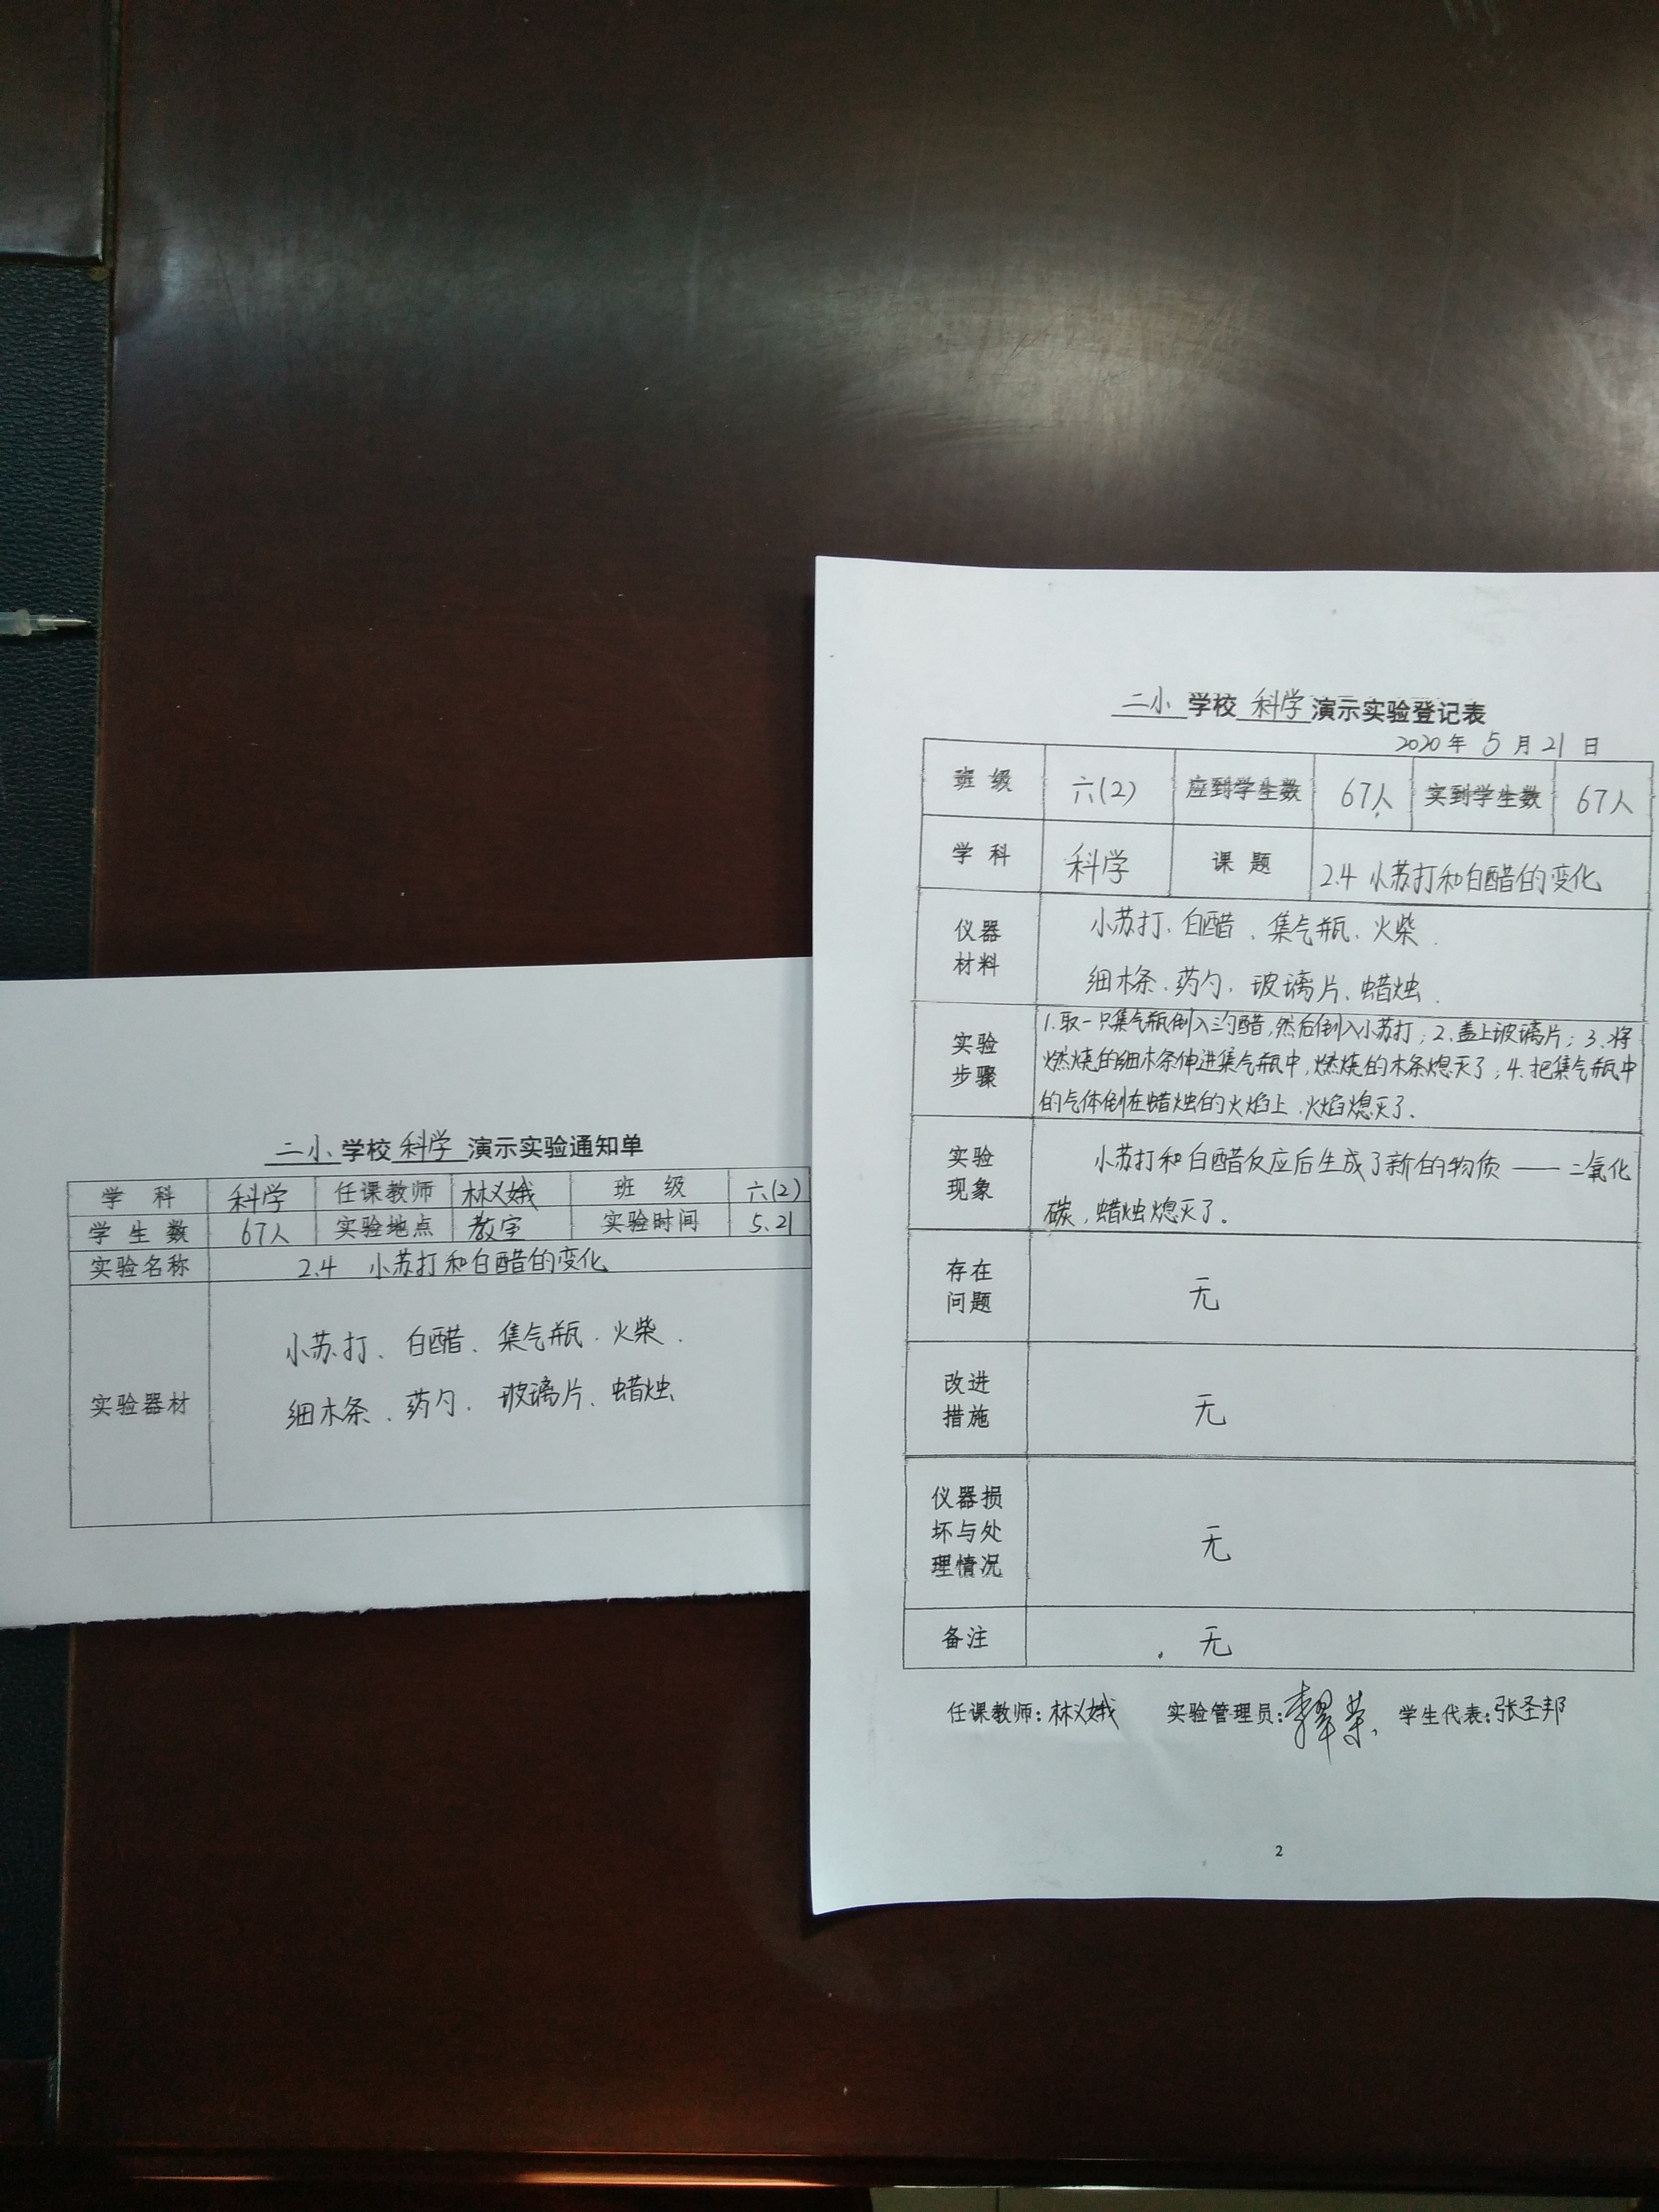 二小学校科学演示实验通知单
学科 科学 任课教师 林义娥 班级 六(2)
学生数 67人 实验地点 教室 实验时间 5.21
实验名称 2.4 小苏打和白醋的变化
实验器材
小苏打、白醋、集气瓶、火柴、
细木条、药勺、玻璃片、蜡烛
二小学校科学演示实验登记表
2020年5月21日
班级 六(2) 应到学生数 67人 实到学生数 67人
学科 科学 课题 2.4 小苏打和白醋的变化
仪器
材料
小苏打、白醋、集气瓶、火柴、
细木条、药勺、玻璃片、蜡烛.
实验
步骤
1.取一只集气瓶倒入三勺醋,然后倒入小苏打;2.盖上玻璃片;3.将
燃烧的细木条伸进集气瓶中,燃烧的木条熄灭了;4.把集气瓶中
的气体倒在蜡烛的火焰上,火焰熄灭了.
实验
现象
小苏打和白醋反应后生成了新的物质——二氧化
碳,蜡烛熄灭了。
存在
问题
无
改进
措施
无
仪器损
坏与处
理情况
无
备注 无
任课教师:林义娥 实验管理员: 学生代表:张圣邦
2